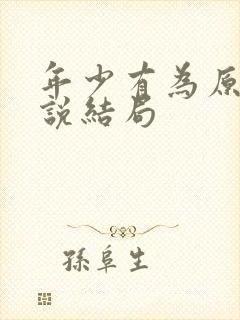 年少有為原
說結局
孫阜生